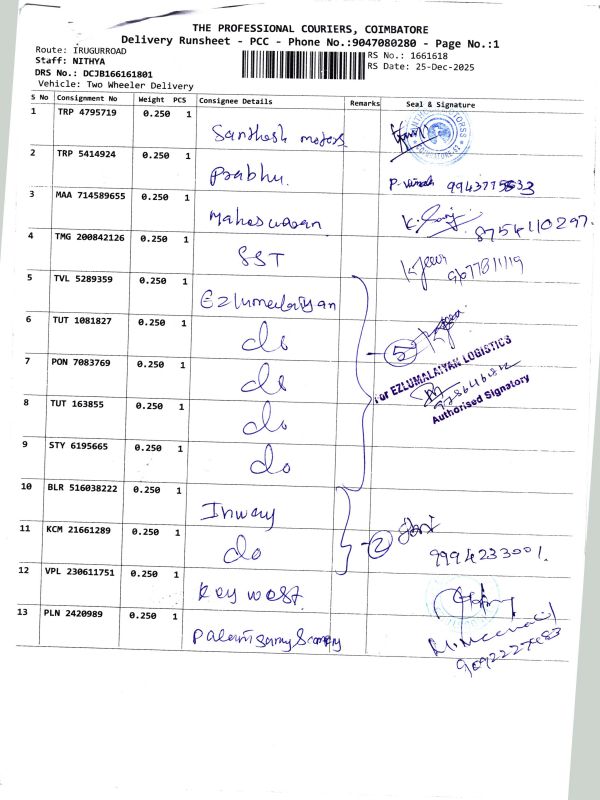 THE PROFESSIONAL COURIERS, COIMBATORE
Delivery Runsheet - PCC - Phone No.:9047080280 - Page No.:1
Route: IRUGURROAD
RS No.: 1661618
Staff: NITHYA
RS Date: 25-Dec-2025
DRS No.: DCJB166161801
Vehicle: Two Wheeler Delivery
S No Consignment No Weight PCS Consignee Details Remarks Seal & Signature
1 TRP 4795719 0.250 1 Santhosh motors
2 TRP 5414924 0.250 1 Prabhu.
3 MAA 714589655 0.250 1 Maheswaran 8754110297.
4 TMG 200842126 0.250 1 SST 9677811119
5 TVL 5289359 0.250 1 Ezlumalaiyan
6 TUT 1081827 0.250 1 do 5
7 PON 7083769 0.250 1 do
For EZLUMALAIYAN LOGISTICS
8 TUT 163855 0.250 1 do
Authorised Signatory
9 STY 6195665 0.250 1 do
10 BLR 516038222 0.250 1 Inway
11 KCM 21661289 0.250 1 do 2 9994233001.
12 VPL 230611751 0.250 1 Key west.
13 PLN 2420989 0.250 1 Palanisamy & company